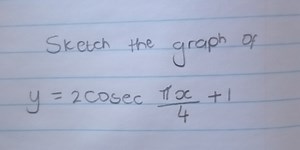 Sketch the graph of
y = 2cosec πx/4 + 1